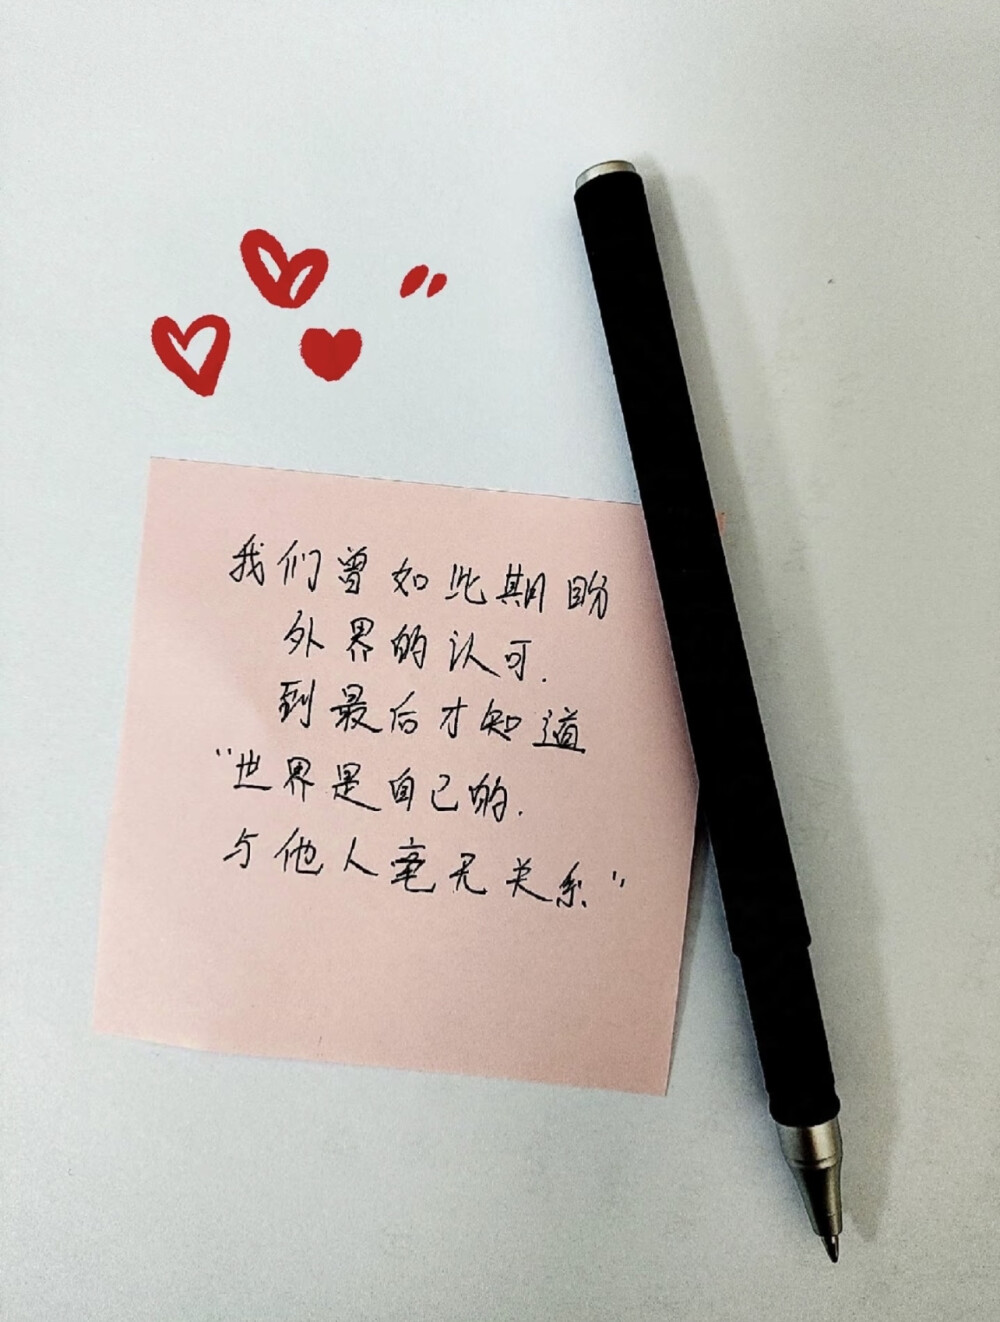 我们曾如此期盼
外界的认可.
到最后才知道
"世界是自己的.
与他人毫无关系"